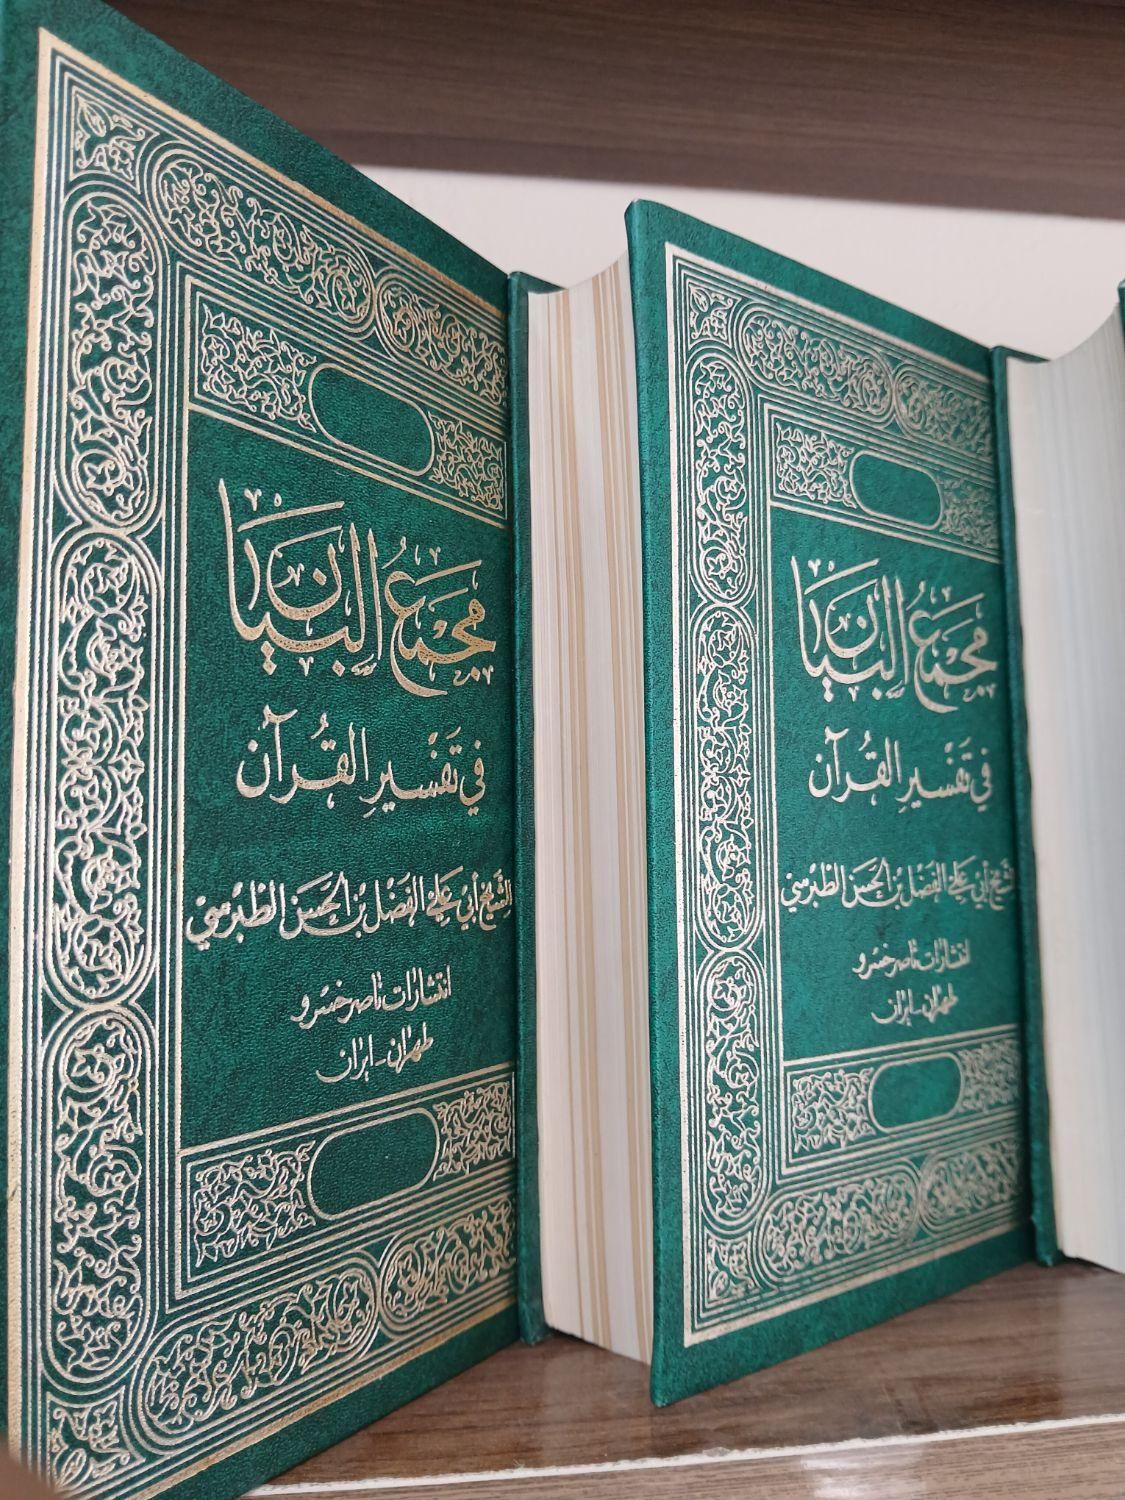 مَجْمَعُ البَيَان
في تَفْسيرِ القُرآن
الشَّيْخ أَبي عَلي الفَضْل بن الحَسَن الطَبْرسي
انتشارات ناصر خسرو
طهران - ايران
مَجْمَعُ البَيَان
في تَفْسيرِ القُرآن
الشَّيْخ أَبي عَلي الفَضْل بن الحَسَن الطَبْرسي
انتشارات ناصر خسرو
طهران - ايران